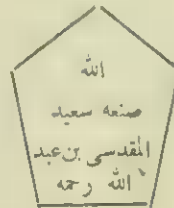 الله
صنعه سعيد
المقدسى بن عبد
الله رحمه